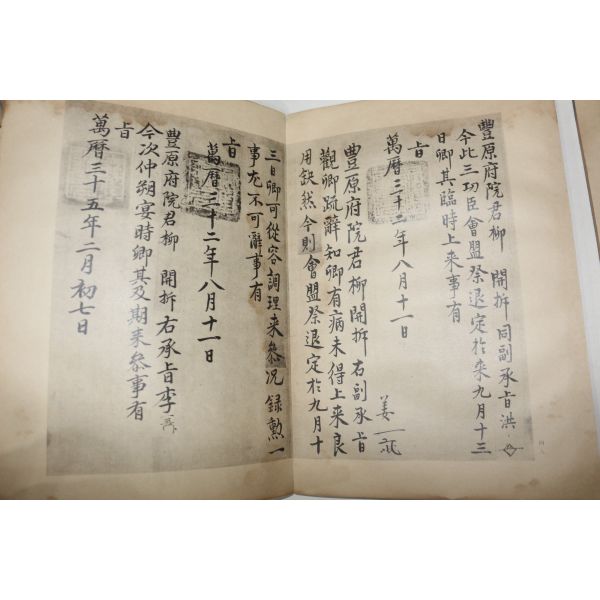 豊原府院君柳 開拆 同副承旨洪
今此三功臣會盟祭退定於來九月十三
日卿其臨時上来事有
萬曆三十二年八月十一日
豊原府院君柳開拆 右副承旨
姜
觀卿疏辭知卿有病未得上来良
用缺然今則會盟祭退定於九月十
三日卿可從容調理来叅况錄勲一
事尤不可辭事有
旨
萬曆三十二年八月十一日
豊原府院君柳 開拆 右承旨李
今次仲朔宴時卿其及期来叅事有
旨
萬曆三十五年二月初七日